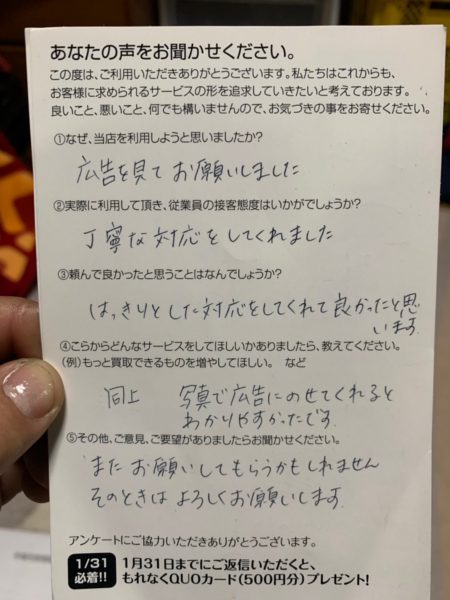 あなたの声をお聞かせください。
この度は、ご利用いただきありがとうございます。私たちはこれからも、
お客様に求められるサービスの形を追求していきたいと考えております。
良いこと、悪いこと、何でも構いませんので、お気づきの事をお寄せください。
①なぜ、当店を利用しようと思いましたか?
広告を見てお願いしました
②実際に利用して頂き、従業員の接客態度はいかがでしょうか?
丁寧な対応をしてくれました
③頼んで良かったと思うことはなんでしょうか?
はっきりとした対応をしてくれて良かったと思
います.
④こらからどんなサービスをしてほしいかありましたら、教えてください。
(例)もっと買取できるものを増やしてほしい。 など
同上 写真で広告にのせてくれると
わかりやすかったです.
⑤その他、ご意見、ご要望がありましたらお聞かせください。
またお願いしてもらうかもしれません
そのときはよろしくお願いします.
アンケートにご協力いただきありがとうございます。
1/31
必着!!
1月31日までにご返信いただくと、
もれなくQUOカード(500円分)プレゼント!